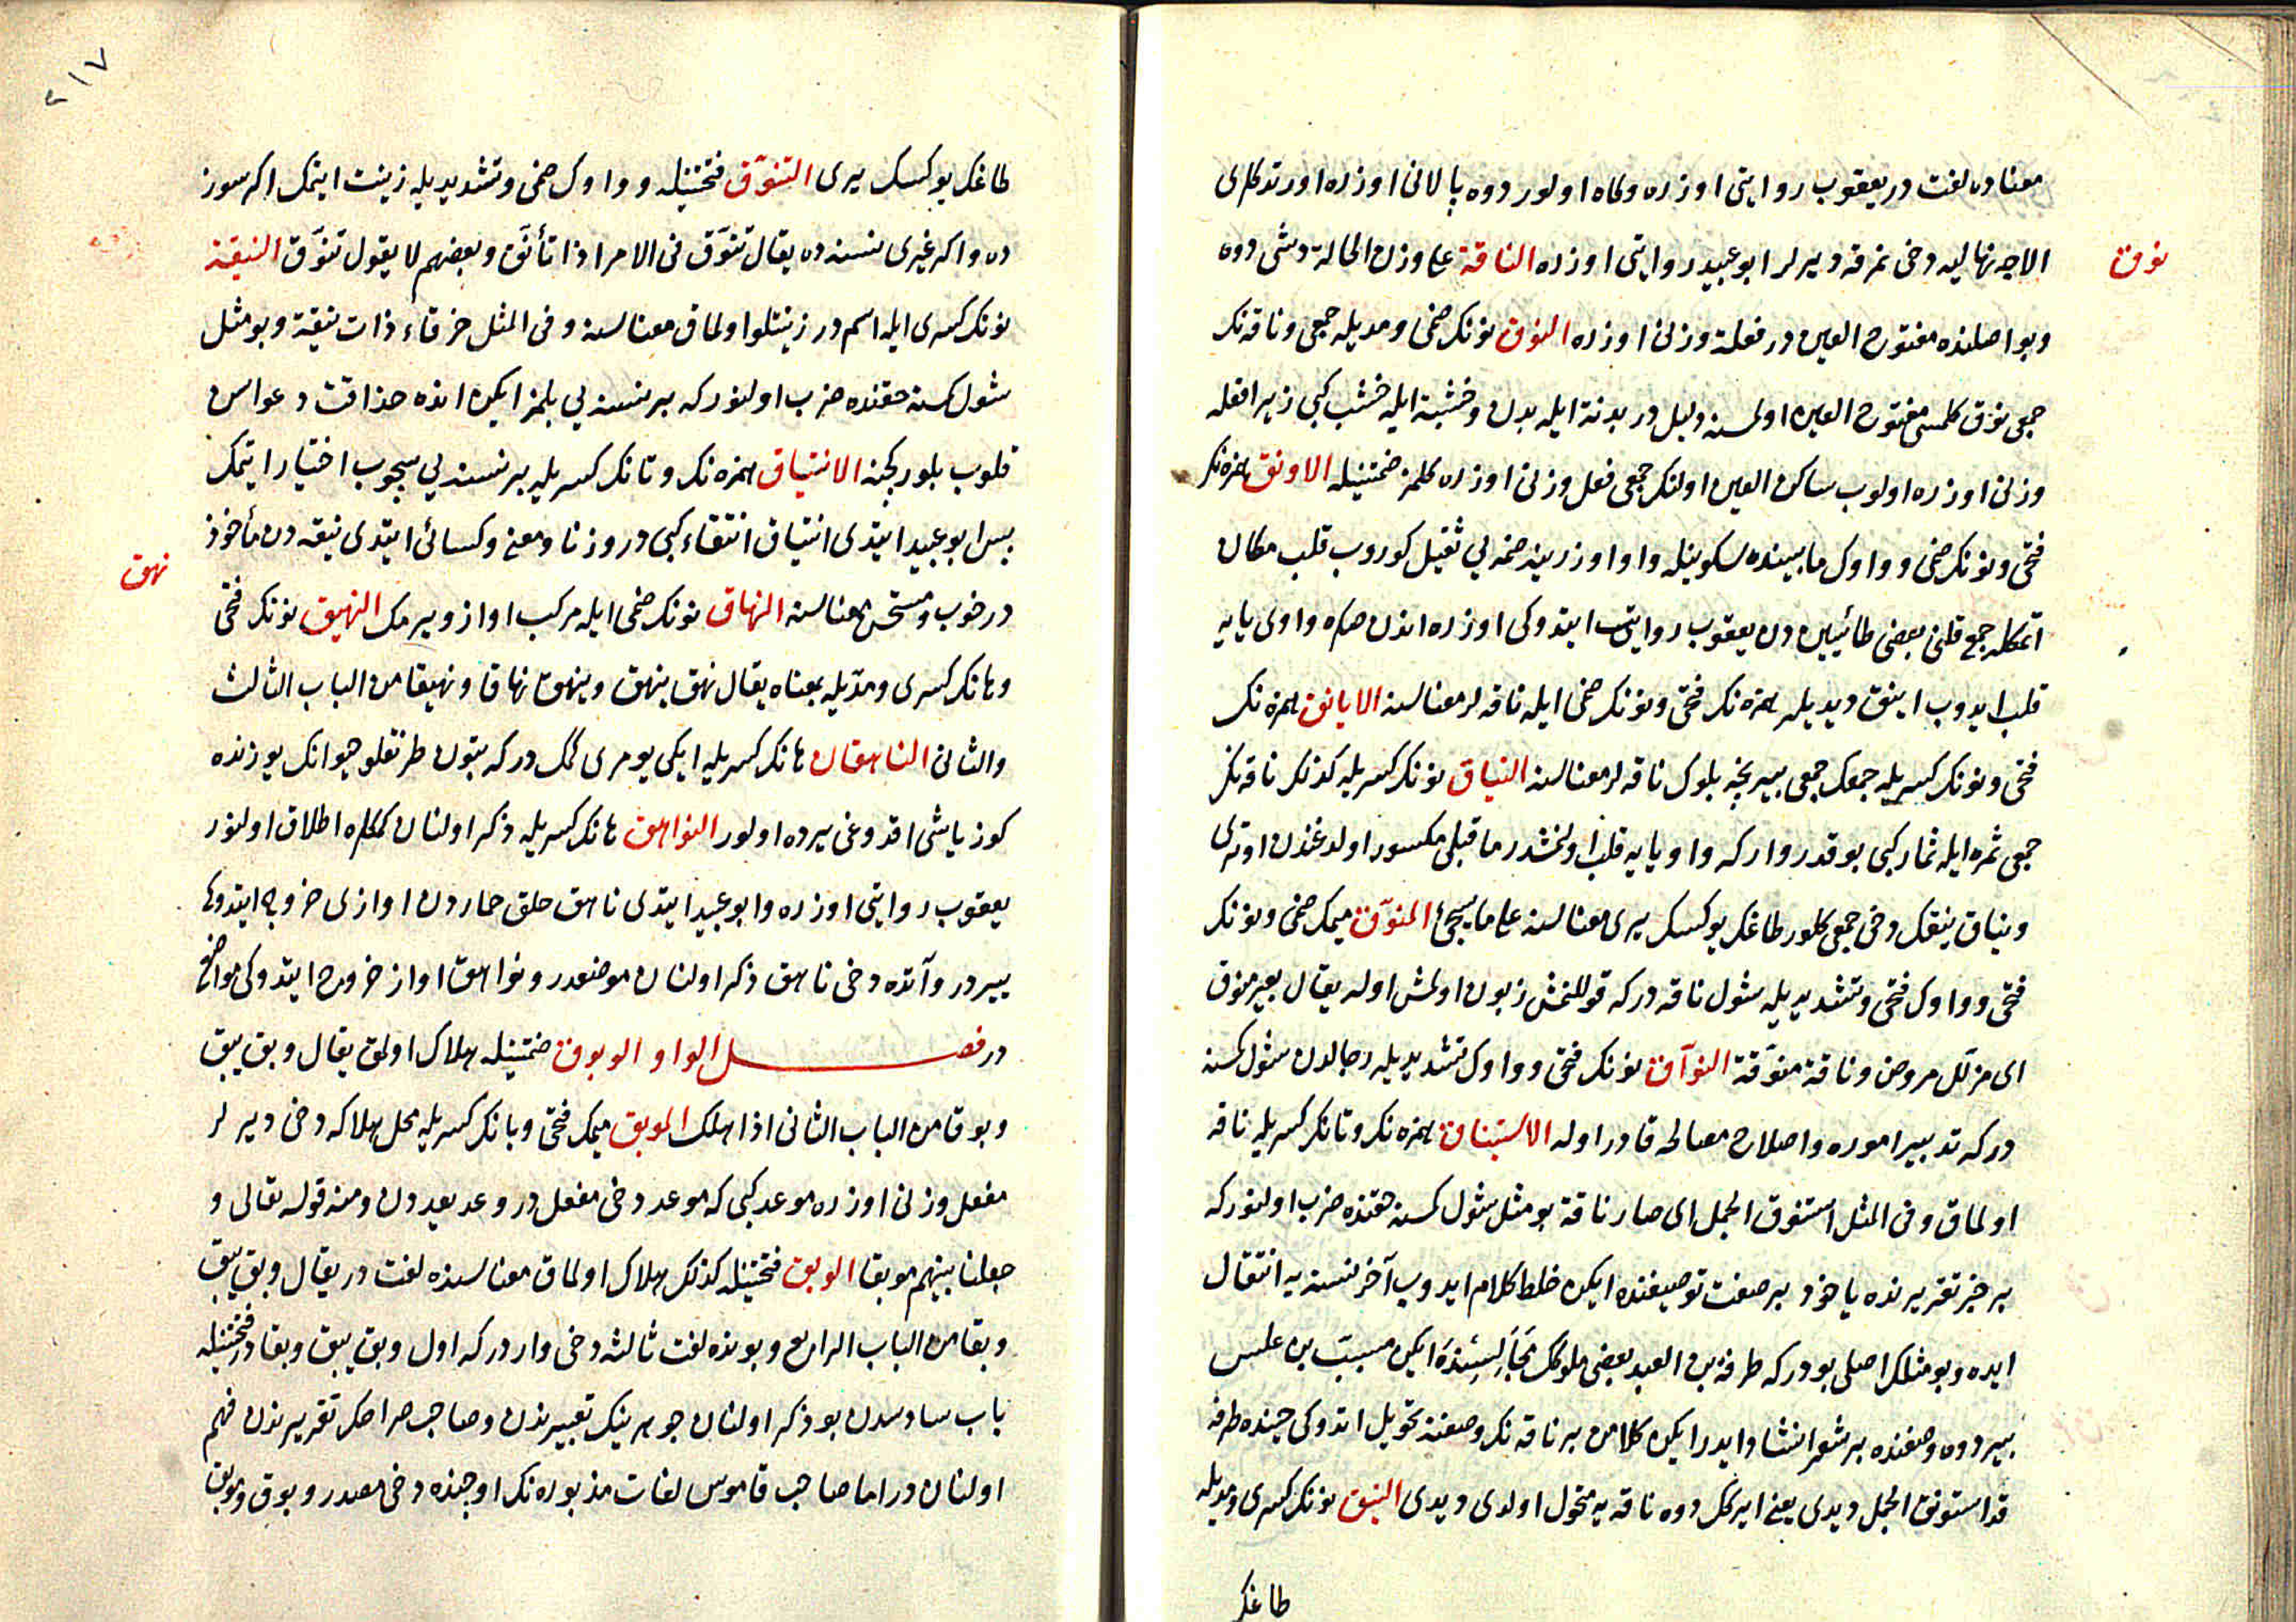 معناده لغت در يعقوب روايتى اوزره ولماه اولور دوه پالانى اوزره اورتدكلرى
نوق
الاجه نهاليه دخى نمرقه ديرلر ابو عبيد روايتى اوزره الناقة على وزن الحالة ديشى دوه
وبو اصلنده مفتوح العين در فعلة وزنى اوزره النوق نونك ضمى ومديله جمعى وناقه نك
جمعى نوق كلمسى مفتوح العين اولسنه دليل در بدنة ايله بدن وخشبة ايله خشب كبى زيرا فعله
وزنى اوزره اولوب ساكن العين اولنك جمعى فعل وزنى اوزره كلمز ضمتينله الاونق همزه نك
فتحى ونونك ضمى وواوك مابيننده سكونيله واو اوزرينه ضمه يى ثقيل كوروب قلب مكان
اتمكله جمع قلتى بعضى طائيين دن يعقوب روايت ايتدوكى اوزره اندن صكره واوى يايه
قلب ايدوب اينق ديديلر همزه نك فتحى ونونك ضمى ايله ناقه لر معناسنه الايانق همزه نك
فتحى ونونك كسريله جمعك جمعى بير نجه بلوك ناقه لر معناسنه النياق نونك كسريله كذلك ناقه نك
جمعى ثمره ايله ثمار كبى بو قدر وار كه واو يايه قلب اولنمشدر ماقبلى مكسور اولدغندن اوترى
ونياق نيقك دخى جمعى كلور طاغك يوكسك يرى معناسنه على ما سيجئ المنوّق ميمك ضمى ونونك
فتحى وواوك فتحى وتشديديله شول ناقه دركه قوللنمش زبون اولمش اوله يقال بعير منوق
اى مذلل مروض وناقة منوّقة النوّاق نونك فتحى وواوك تشديديله رجالدن شول كسنه
دركه تدبير اموره واصلاح مصالحه قادر اوله الاستيناق همزه نك وتانك كسريله ناقه
اولماق وفى المثل استنوق الجمل اى صار ناقة بو مثل شول كسنه حقنده ضرب اولنوركه
بر خبر تقريرنده ياخود بر صفت توصيفنده ايكن خلط كلام ايدوب آخر نسنه يه انتقال
ايده وبو مثلك اصلى بودركه طرفة بن العبد بعضى ملوك مجالسنده ايكن مسيب بن علس
بير دوه وصفنده بر شعر انشاد ايدر ايكن كلامن بر ناقه نك وصفنه تحويل اتدوكى حينده طرفه
قد استونق الجمل ديدى يعنى ايركك دوه ناقه يه متحول اولدى ديدى النيق نونك كسرى ومديله
طاغك
٢١٧
طاغك يوكسك يرى التنوّق فتحتينله وواوك ضمى وتشديديله زينت ايتمك اكر سوز
ده واكر غيرى نسنه ده يقال تنوّق فى الامر اذا تأنّق وبعضهم لا يقول تنوّق النيقة
نونك كسرى ايله اسم در زينتلو اولماق معناسنه وفى المثل خرقاء ذات نيقة وبو مثل
شول كسنه حقنده ضرب اولنوركه بر نسنه يى بلمز ايكن انده حذاقت دعواسن
قلوب بلورجكنه الانتياق همزه نك وتانك كسريله بر نسنه يى سچوب اختيار ايتمك
پس ابو عبيد ايتدى انتياق انتقاء كبى در وزنا ومعنى وكسائى ايتدى نيقه دن مأخوذ
نهق
در خوب ومستحسن معناسنه النهاق نونك ضمى ايله مركب اواز ويرمك النهيق نونك فتحى
وهانك كسرى ومدّيله بمعناه يقال نهق ينهق وينهق نهاقا ونهيقا من الباب الثالث
والثانى الناهقان هانك كسريله ايكى يومرى كمك دركه بتون طرنقلو حيوانك يوزنده
كوز ياشى اقدوغى يرده اولور النواهق هانك كسريله ذكر اولنان كمكلره اطلاق اولنور
يعقوب روايتى اوزره وابو عبيد ايتدى ناهق حلق حماردن اوازى خروج ايتدوكى
يير در وآتده دخى ناهق ذكر اولنان موضعدر ونواهق اواز خروج ايتدوكى مواضع
در فصل الواو الوبوق ضمتينله هلاك اولمق يقال وبق يبق
وبوقا من الباب الثانى اذا هلك الموبق ميمك فتحى وبانك كسريله محل هلاكه دخى ديرلر
مفعل وزنى اوزره موعد كبى كه موعد دخى مفعل در وعد يعد دن ومنه قوله تعالى و
جعلنا بينهم موبقا الوبق فتحتينله كذلك هلاك اولماق معناسنده لغت در يقال وبق يبق
وبقا من الباب الرابع وبونده لغت ثالثه دخى واردركه اول وبق يبق وبقادر فتحتينله
باب سادسدن بو ذكر اولنان جوهرينك تعبيرندن وصاحب صراحك تقريرندن فهم
اولنان در اما صاحب قاموس لغات مذبوره نك اوچنده دخى مصدر وبوق وموبق